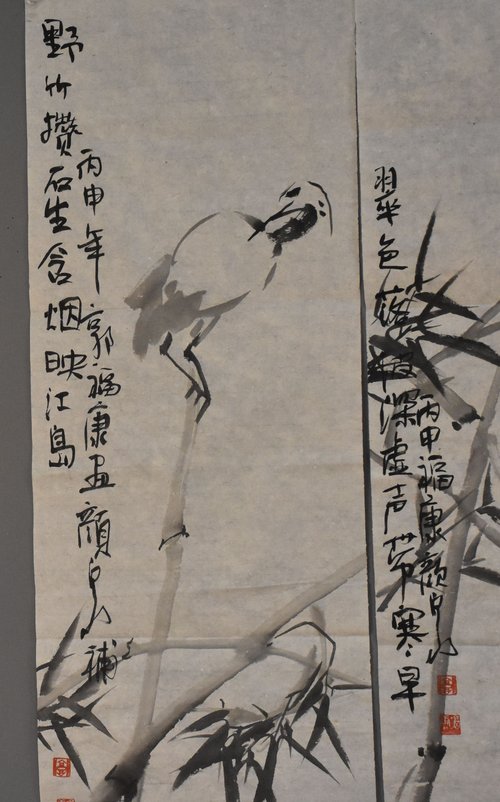 野竹攒石生含烟映江岛
丙申年郭福康画颜山补之
翠色落波深虚声带寒早
丙申福康颜山